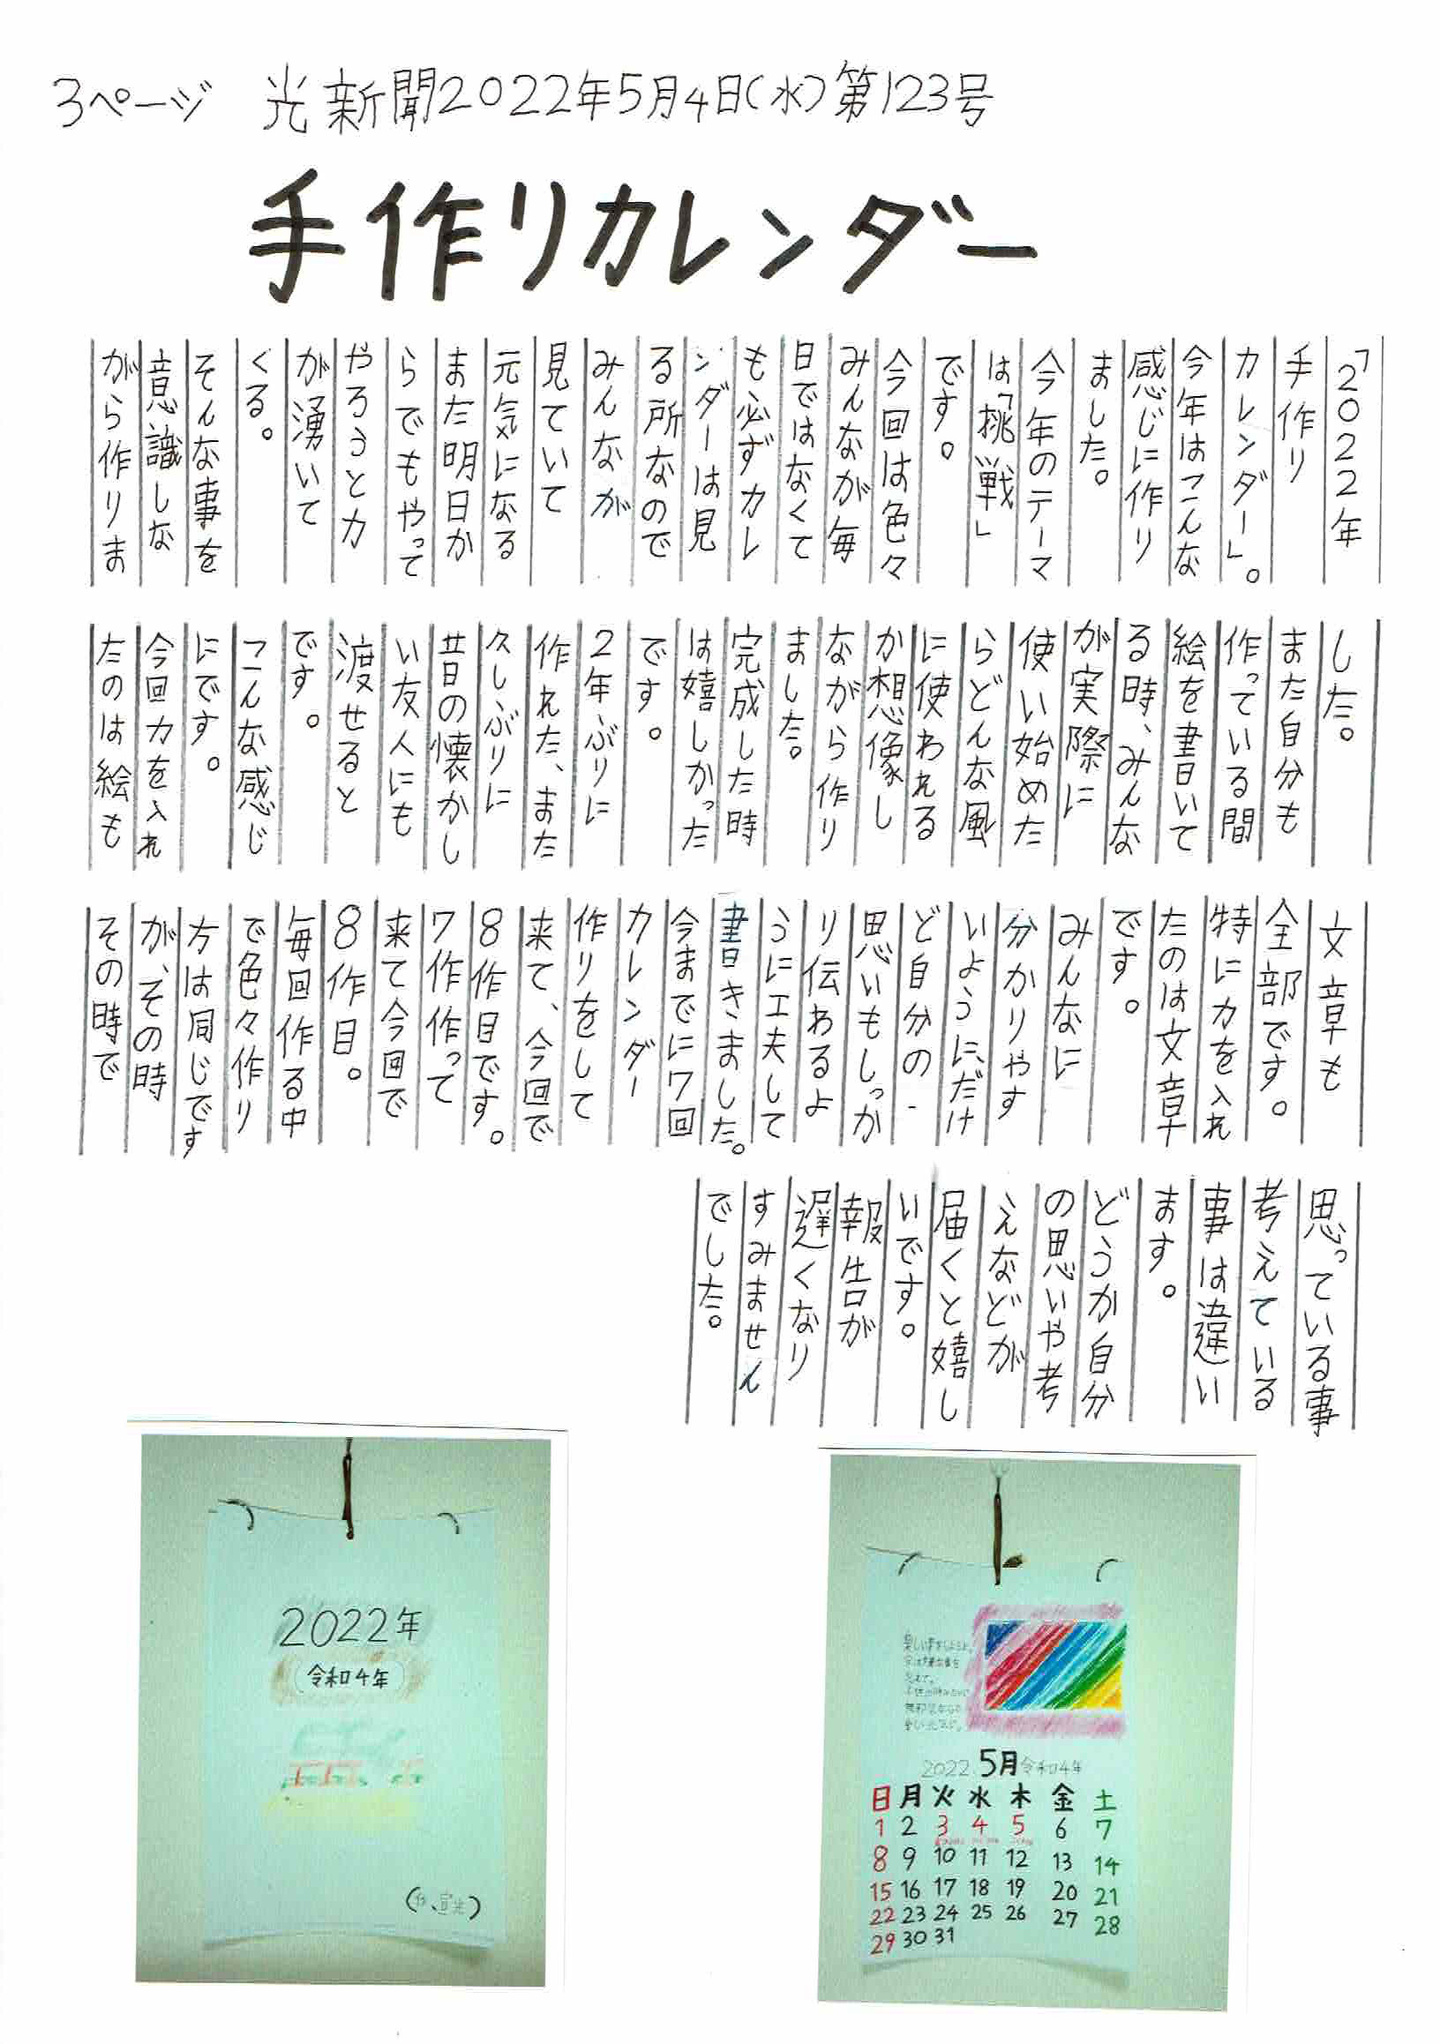 3ページ 光新聞2022年5月4日(水)第123号
手作りカレンダー
「2022年
手作り
カレンダー」。
今年はこんな
感じに作り
ました。
今年のテーマ
は「挑戦」
です。
今回は色々
みんなが毎
日ではなくて
も必ずカレ
ンダーは見
る所なので
みんなが
見ていて
元気になる
また明日か
らでもやって
やろうと力
が湧いて
くる。
そんな事を
意識しな
がら作りま
した。
また自分も
作っている間
絵を書いて
る時、みんな
が実際に
使い始めた
らどんな風
に使われる
か想像し
ながら作り
ました。
完成した時
は嬉しかった
です。
2年ぶりに
作れた、また
久しぶりに
昔の懐かし
い友人にも
渡せると
です。
こんな感じ
にです。
今回力を入れ
たのは絵も
文章も
全部です。
特に力を入れ
たのは文章
です。
みんなに
分かりやす
いように、だけ
ど自分の
思いもしっか
り伝わるよ
うに工夫して
書きました。
今までに7回
カレンダー
作りをして
来て、今回で
8作目です。
7作作って
来て今回で
8作目。
毎回作る中
で色々作り
方は同じです
が、その時
その時で
思っている事
考えている
事は違い
ます。
どうか自分
の思いや考
えなどが
届くと嬉し
いです。
報告が
遅くなり
すみません
でした。
2022年
令和4年
(作、宣光)
2022 5月 令和4年
日 月 火 水 木 金 土
1 2 3 4 5 6 7
8 9 10 11 12 13 14
15 16 17 18 19 20 21
22 23 24 25 26 27 28
29 30 31